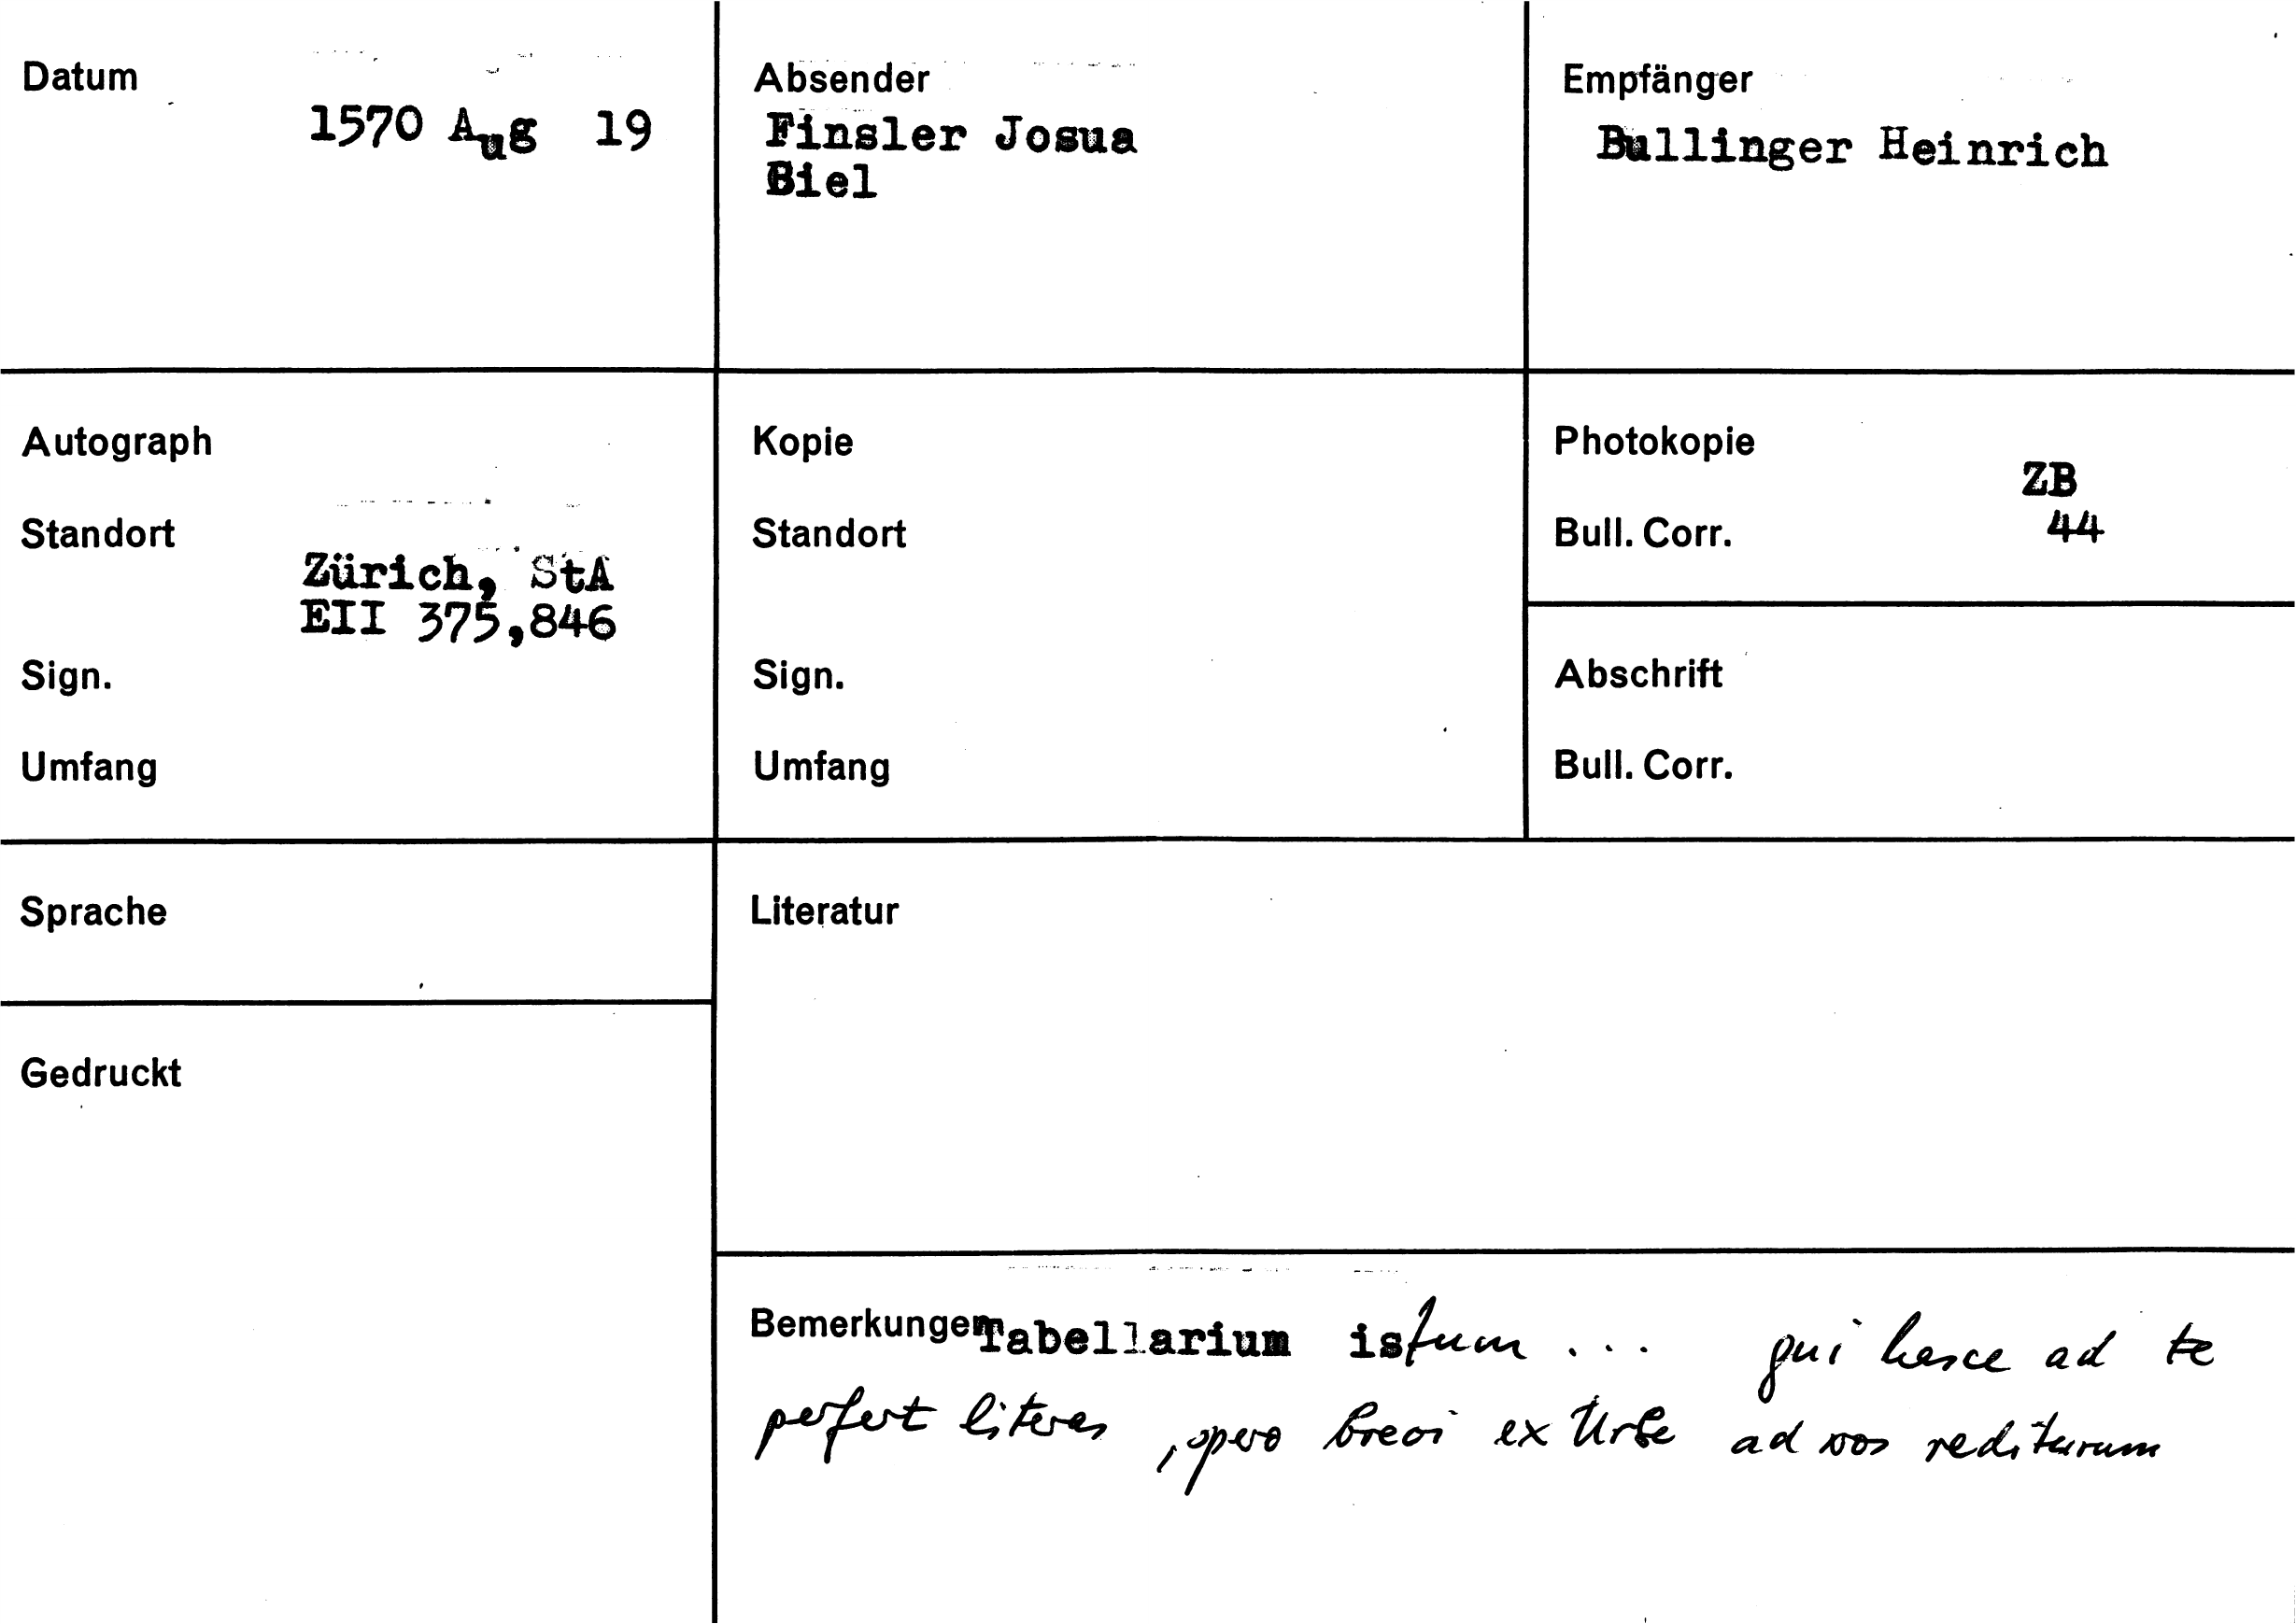 Datum
1570 Aug 19
Absender
Finsler Josua
Biel
Empfänger
Bullinger Heinrich
Autograph
Standort
Zürich, StA
EII 375,846
Sign.
Umfang
Kopie
Standort
Sign.
Umfang
Photokopie
ZB
Bull. Corr. 44
Abschrift
Bull. Corr.
Sprache
Gedruckt
Literatur
Bemerkungen Tabellarium istum ... qui hasce ad te
perfert literas, spero brevi ex Urbe ad vos rediturum